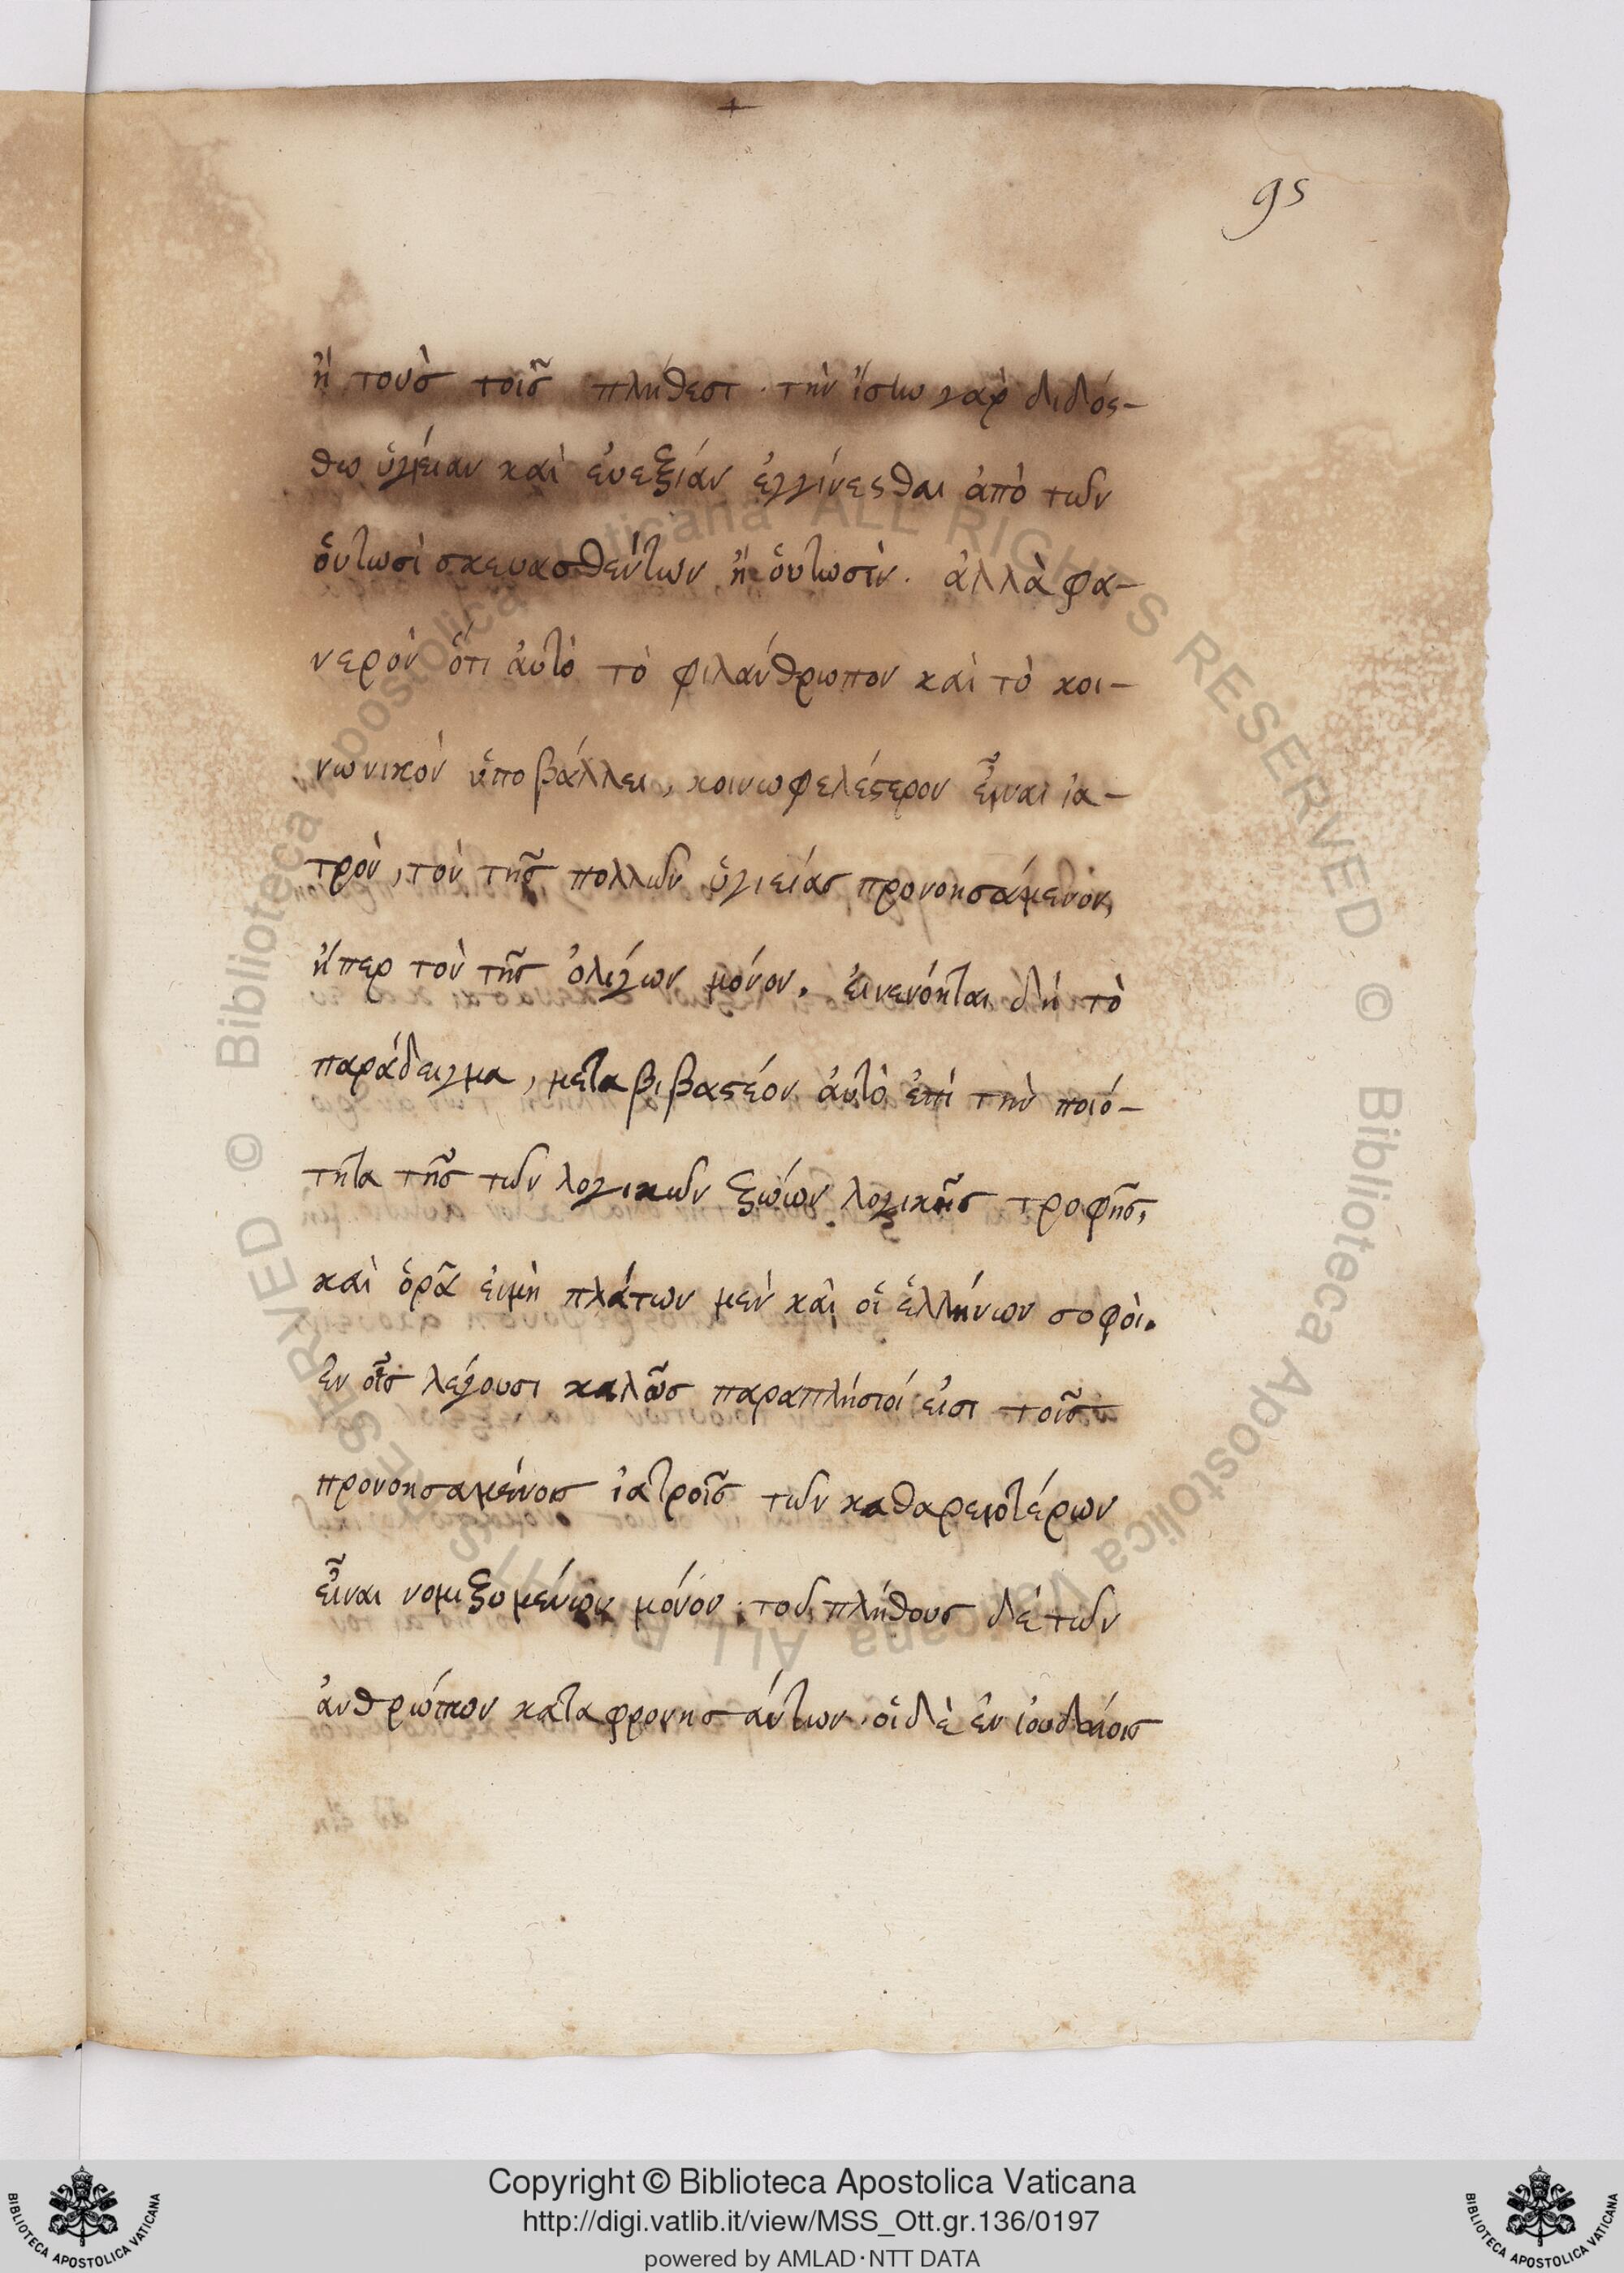 95
ἢ τοὺσ τοῖσ πλήθεσι. τὴν ἴσην γὰρ διδόσ-
θω ὑγίειαν καὶ εὐεξίαν ἐγγίνεσθαι ἀπὸ τῶν
οὕτωσὶ σκευασθέντων ἢ οὕτωσὶν. ἀλλὰ φα-
νερὸν ὅτι ἀυτὸ τὸ φιλάνθρωπον καὶ τὸ κοι-
νωνικὸν ὑποβάλλει, κοινωφελέστερον εἶναι ἰα-
τρὸν, τὸν τῆσ πολλῶν ὑγιείασ προνοησάμενον,
ἤπερ τὸν τῆσ ὀλίγων μόνον. ἐι νενόηται δὴ τὸ
παράδειγμα, μεταβιβαστέον ἀυτὸ ἐπὶ τὴν ποιό-
τητα τῆσ τῶν λογικῶν ζώιων λογικῆσ τροφῆσ,
καὶ ὅρα ἐι μὴ πλάτων μὲν καὶ οἱ ἑλλήνων σοφὸι.
ἐν οἷσ λέγουσι καλῶσ παραπλήσιοί εἰσι τοῖσ
προνοησαμένοισ ἰατροῖσ τῶν καθαρειοτέρων
εἶναι νομιζομένων μόνον. τοῦ πλήθουσ δὲ τῶν
ἀνθρώπων καταφρονησάντων. οἱ δὲ ἐν ἰουδαίοισ
Copyright © Biblioteca Apostolica Vaticana
http://digi.vatlib.it/view/MSS_Ott.gr.136/0197
powered by AMLAD·NTT DATA
BIBLIOTECA APOSTOLICA VATICANA
BIBLIOTECA APOSTOLICA VATICANA
© Biblioteca Apostolica Vaticana ALL RIGHTS RESERVED © Biblioteca Apostolica Vaticana ALL RIGHTS RESERVED